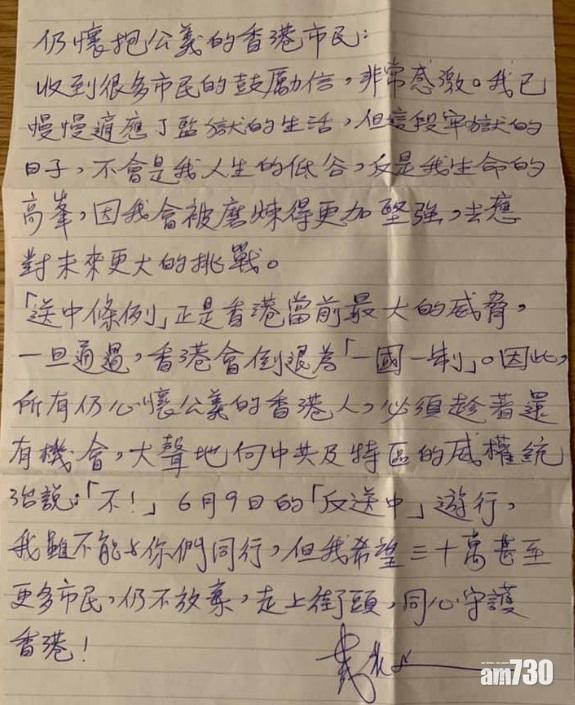 仍懷抱公義的香港市民：
收到很多市民的鼓勵信，非常感激。我已
慢慢適應了監獄的生活，但這段牢獄的
日子，不會是我人生的低谷，反是我生命的
高峯，因我會被磨煉得更加堅強，去應
對未來更大的挑戰。
「送中條例」正是香港當前最大的威脅，
一旦通過，香港會倒退為「一國一制」。因此，
所有仍心懷公義的香港人，必須趁著還
有機會，大聲地向中共及特區的威權統
治說：「不！」6月9日的「反送中」遊行，
我雖不能與你們同行，但我希望三十萬甚至
更多市民，仍不放棄，走上街頭，同心守護
香港！
戴
am730